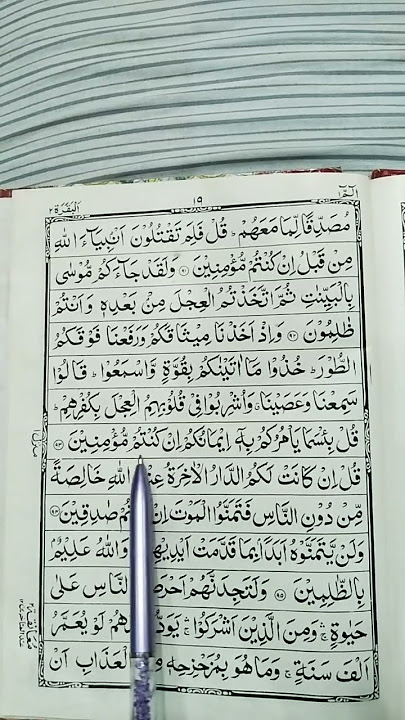 الٓمّٓ ١
١٩
اَلْبَقَرَة ٢
مُصَدِّقًا لِّمَا مَعَهُمْ ؕ قُلْ فَلِمَ تَقْتُلُوْنَ اَنْۢبِيَآءَ اللّٰهِ
مِنْ قَبْلُ اِنْ كُنْتُمْ مُّؤْمِنِيْنَ ٩١ وَلَقَدْ جَآءَكُمْ مُّوْسٰى
بِالْبَيِّنٰتِ ثُمَّ اتَّخَذْتُمُ الْعِجْلَ مِنْۢ بَعْدِهٖ وَاَنْتُمْ
ظٰلِمُوْنَ ٩٢ وَاِذْ اَخَذْنَا مِيْثَاقَكُمْ وَرَفَعْنَا فَوْقَكُمُ
الطُّوْرَ ؕ خُذُوْا مَاۤ اٰتَيْنٰكُمْ بِقُوَّةٍ وَّاسْمَعُوْا ؕ قَالُوْا
سَمِعْنَا وَعَصَيْنَا وَاُشْرِبُوْا فِيْ قُلُوْبِهِمُ الْعِجْلَ بِكُفْرِهِمْ ؕ
قُلْ بِئْسَمَا يَاْمُرُكُمْ بِهٖۤ اِيْمَانُكُمْ اِنْ كُنْتُمْ مُّؤْمِنِيْنَ ٩٣
قُلْ اِنْ كَانَتْ لَكُمُ الدَّارُ الْاٰخِرَةُ اللّٰهِ خَالِصَةً
مِّنْ دُوْنِ النَّاسِ فَتَمَنَّوُا الْمَوْتَ اِنْ صٰدِقِيْنَ ٩٤
وَلَنْ يَّتَمَنَّوْهُ اَبَدًۢا بِمَا قَدَّمَتْ اَيْدِيْهِمْ وَاللّٰهُ عَلِيْمٌۢ
بِالظّٰلِمِيْنَ ٩٥ وَلَتَجِدَنَّهُمْ النَّاسِ عَلٰى
حَيٰوةٍ ۛ وَمِنَ الَّذِيْنَ اَشْرَكُوْا ۛ يَوَدُّ لَوْ يُعَمَّرُ
اَلْفَ سَنَةٍ ۚ وَمَا هُوَ بِمُزَحْزِحِهٖ الْعَذَابِ اَنْ